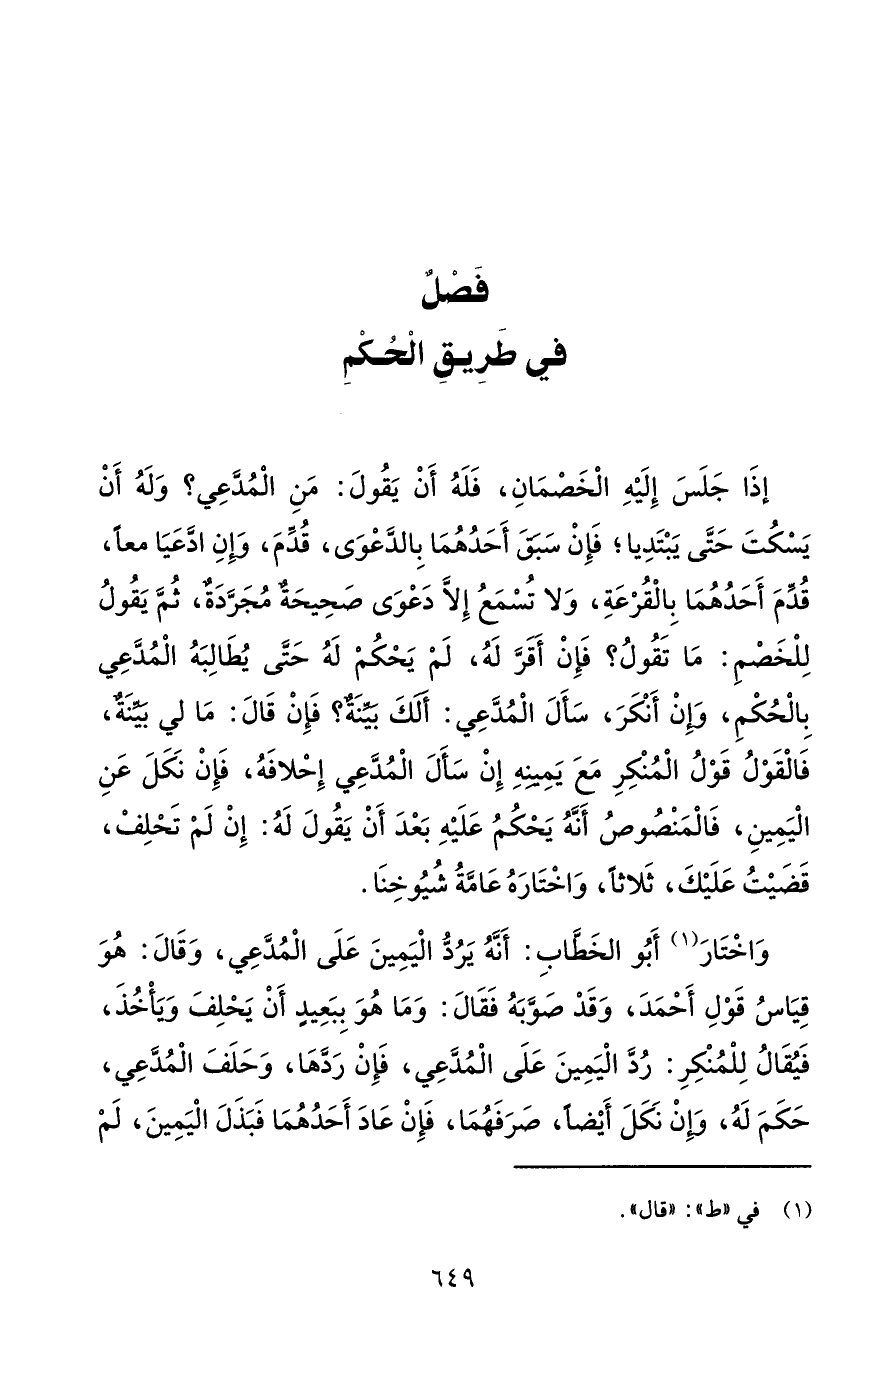 فَصْلٌ
في طَرِيقِ الْحُكْمِ
إِذَا جَلَسَ إِلَيْهِ الْخَصْمَانِ، فَلَهُ أَنْ يَقُولَ: مَنِ الْمُدَّعِي؟ وَلَهُ أَنْ
يَسْكُتَ حَتَّى يَبْتَدِيا؛ فَإِنْ سَبَقَ أَحَدُهُمَا بِالدَّعْوَى، قُدِّمَ، وَإِنِ ادَّعَيَا معاً،
قُدِّمَ أَحَدُهُمَا بِالْقُرْعَةِ، وَلا تُسْمَعُ إِلاَّ دَعْوَى صَحِيحَةٌ مُجَرَّدَةٌ، ثُمَّ يَقُولُ
لِلْخَصْمِ: مَا تَقُولُ؟ فَإِنْ أَقَرَّ لَهُ، لَمْ يَحْكُمْ لَهُ حَتَّى يُطَالِبَهُ الْمُدَّعِي
بِالْحُكْمِ، وَإِنْ أَنْكَرَ، سَأَلَ الْمُدَّعِي: أَلَكَ بَيِّنَةٌ؟ فَإِنْ قَالَ: مَا لي بَيِّنَةٌ،
فَالْقَوْلُ قَوْلُ الْمُنْكِرِ مَعَ يَمِينِهِ إِنْ سَأَلَ الْمُدَّعِي إِحْلافَهُ، فَإِنْ نَكَلَ عَنِ
الْيَمِينِ، فَالْمَنْصُوصُ أَنَّهُ يَحْكُمُ عَلَيْهِ بَعْدَ أَنْ يَقُولَ لَهُ: إِنْ لَمْ تَحْلِفْ،
قَضَيْتُ عَلَيْكَ، ثَلاثاً، وَاخْتَارَهُ عَامَّةُ شُيُوخِنَا.
وَاخْتَارَ(١) أَبُو الخَطَّابِ: أَنَّهُ يَرُدُّ الْيَمِينَ عَلَى الْمُدَّعِي، وَقَالَ: هُوَ
قِيَاسُ قَوْلِ أَحْمَدَ، وَقَدْ صَوَّبَهُ فَقَالَ: وَمَا هُوَ بِبَعِيدٍ أَنْ يَحْلِفَ وَيَأْخُذَ،
فَيُقَالُ لِلْمُنْكِرِ: رُدَّ الْيَمِينَ عَلَى الْمُدَّعِي، فَإِنْ رَدَّهَا، وَحَلَفَ الْمُدَّعِي،
حَكَمَ لَهُ، وَإِنْ نَكَلَ أَيْضاً، صَرَفَهُمَا، فَإِنْ عَادَ أَحَدُهُمَا فَبَذَلَ الْيَمِينَ، لَمْ
(١) في «ط»: «قال».
٦٤٩